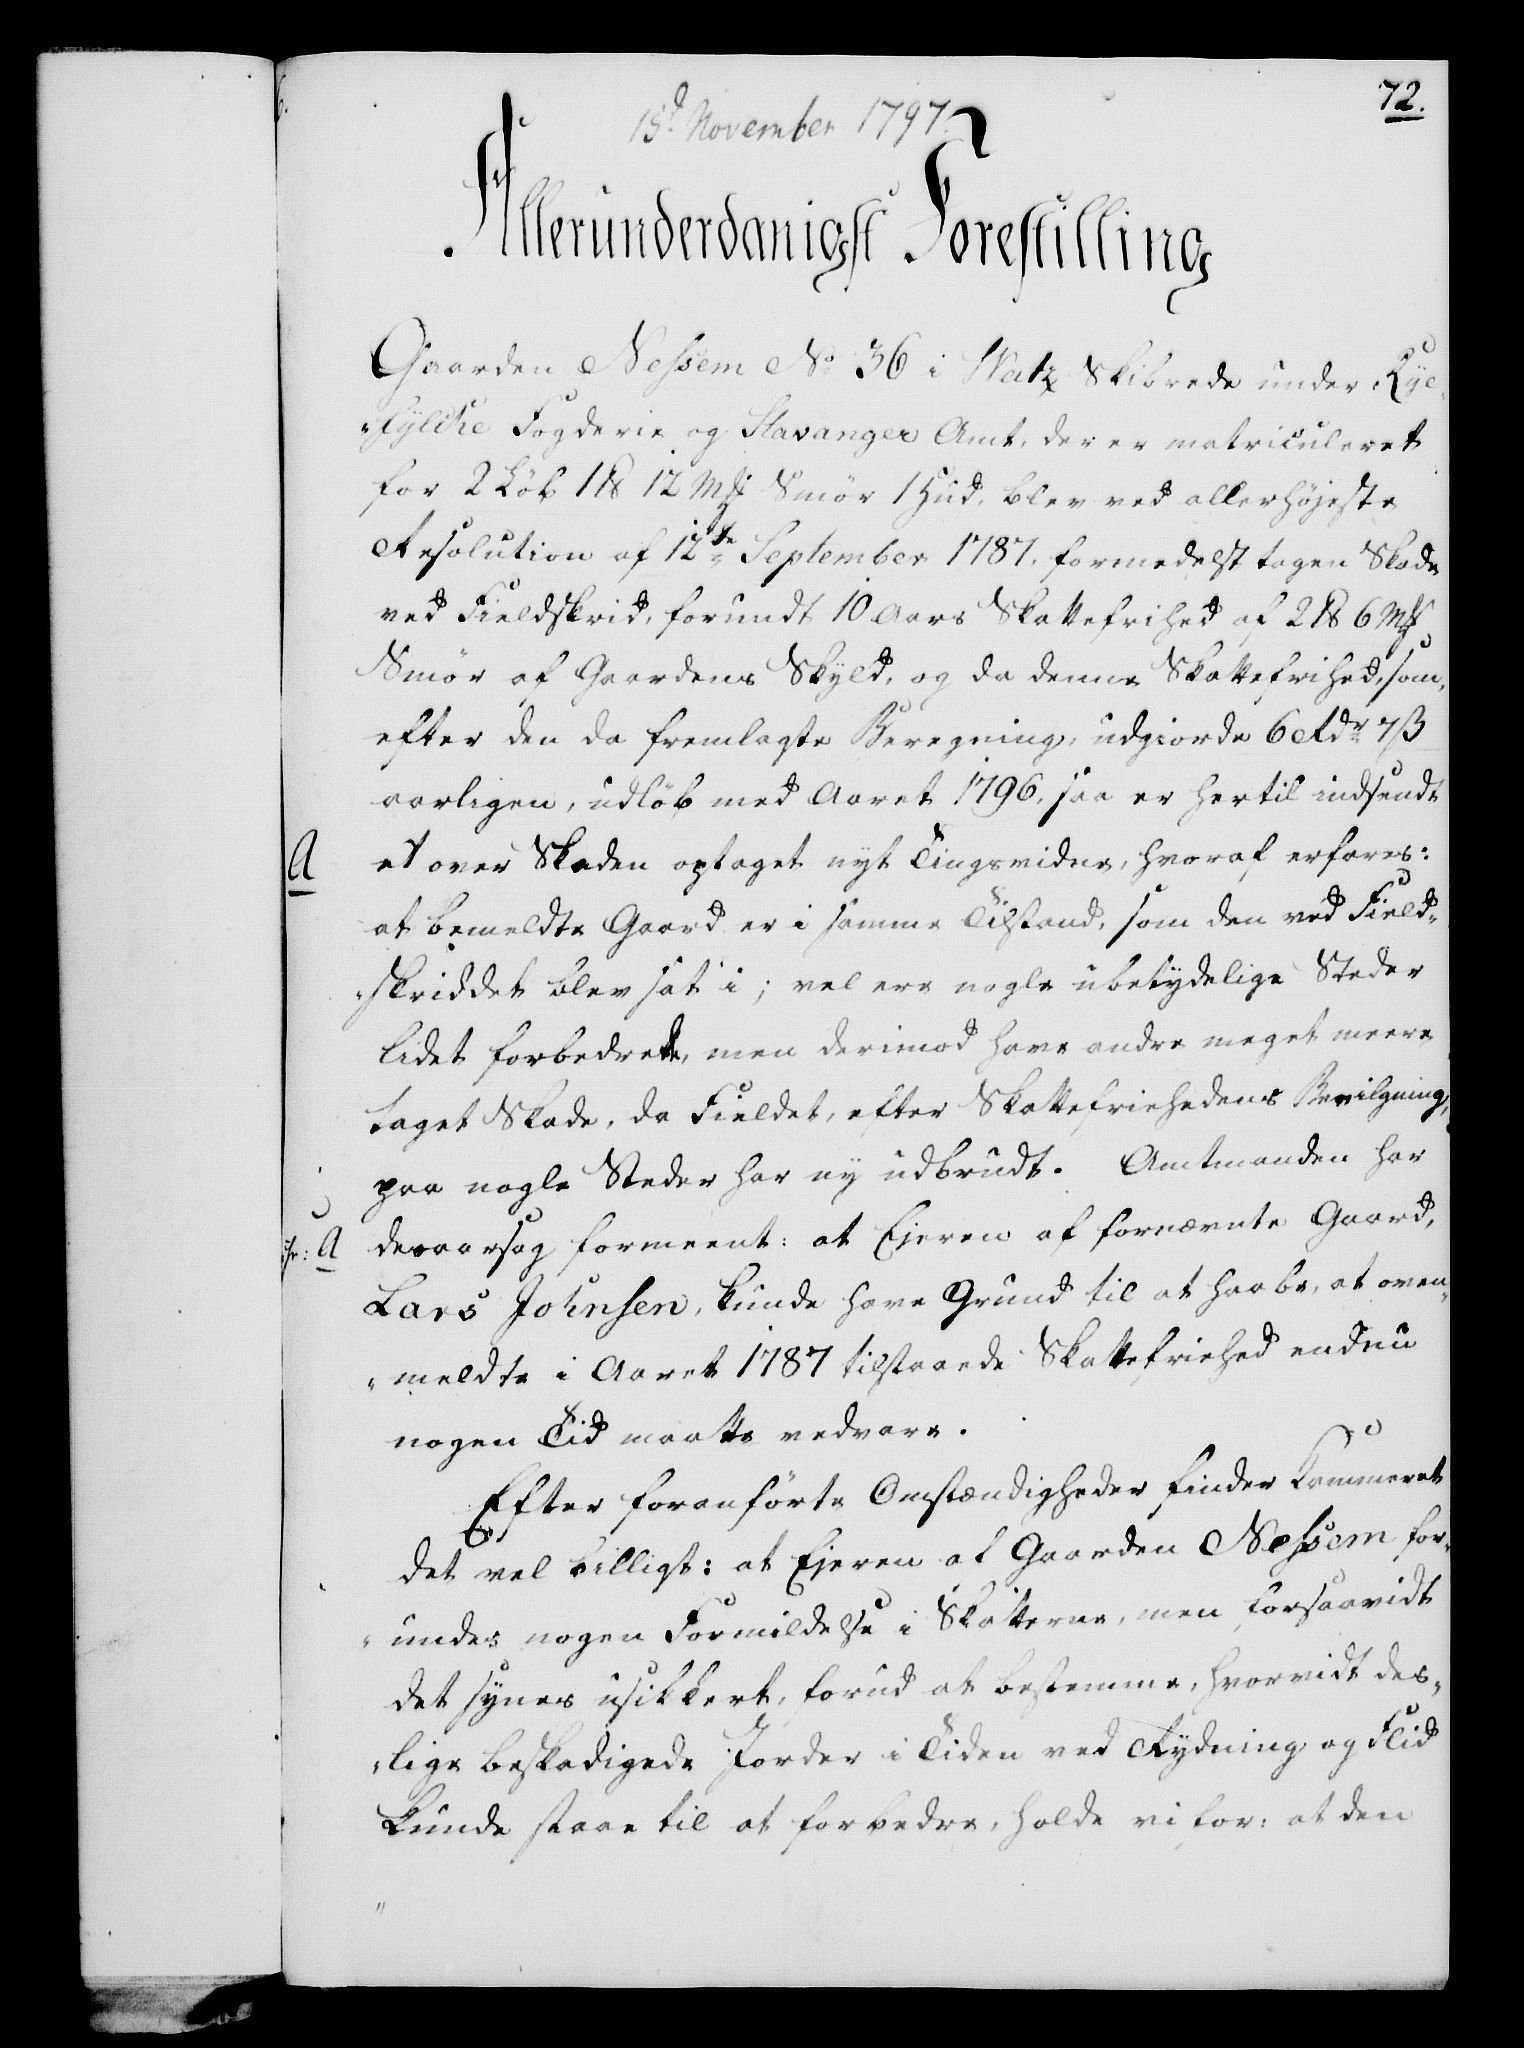 72.
15d November 1797.
Allerunderdanigst Forestilling
Gaarden Nessem No 36 i Watz Skibrede under Rye-
„fylche Fogderie og Stavanger Amt, der er matriculeret
for 2 Løb 1 ℔ 12 Mk Smør 1 Hud, blev ved allerhøjeste
Resolution af 12te September 1787, formedelst tagen Skade
ved Fieldskrid, forundt 10 Aars Skattefrihed af 2 ℔ 6 Mk
Smør af Gaardens Skyld, og da denne Skattefrihed, som,
efter den da fremlagte Beregning, udgiorde 6 Rdr 7 ß
aarligen, udløb med Aaret 1796, saa er hertil indsendt
A
et over Skaden optaget nyt Tingsvidne, hvoraf erfares:
at bemeldte Gaard er i samme Tilstand, som den ved Field-
„skriddet blev sat i; vel ere nogle ubetydelige Steder
lidet forbedrede, men derimod have andre meget meere
taget Skade, da Fieldet, efter Skattefriehedens Bevilgning,
paa nogle Steder har ny udbrudt. Amtmanden har
fr: A
desaarsag formeent: at Ejeren af fornævnte Gaard,
Lars Johnsen, kunde have Grund til at haabe, at oven-
„meldte i Aaret 1787 tilstaaede Skattefriehed endnu
nogen Tid maatte vedvare.
Efter foranførte Omstændigheder finder Kammeret
det vel billigt: at Ejeren af Gaarden Nessem for-
„undes nogen Formildelse i Skatterne, men forsaavidt
det synes usikkert, forud at bestemme, hvorvidt des-
„lige beskadigede Jorder i Tiden ved Rydning og Flid
kunde staae til at forbedre, holde vi for: at den